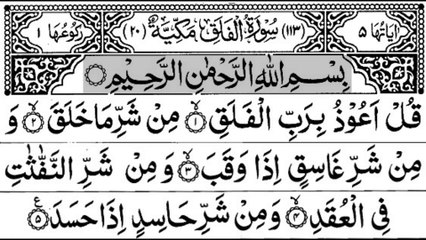 اٰيَاتُهَا ٥ (١١٣) سُوْرَةُ الْفَلَقِ مَكِّيَّةٌ (٢٠) رُكُوْعُهَا ١
بِسْمِ اللّٰهِ الرَّحْمٰنِ الرَّحِيْمِ
قُلْ اَعُوْذُ بِرَبِّ الْفَلَقِ ۙ﴿١﴾ مِنْ شَرِّ مَا خَلَقَ ۙ﴿٢﴾ وَ
مِنْ شَرِّ غَاسِقٍ اِذَا وَقَبَ ۙ﴿٣﴾ وَ مِنْ شَرِّ النَّفّٰثٰتِ
فِى الْعُقَدِ ۙ﴿٤﴾ وَ مِنْ شَرِّ حَاسِدٍ اِذَا حَسَدَ ﴿٥﴾ ع